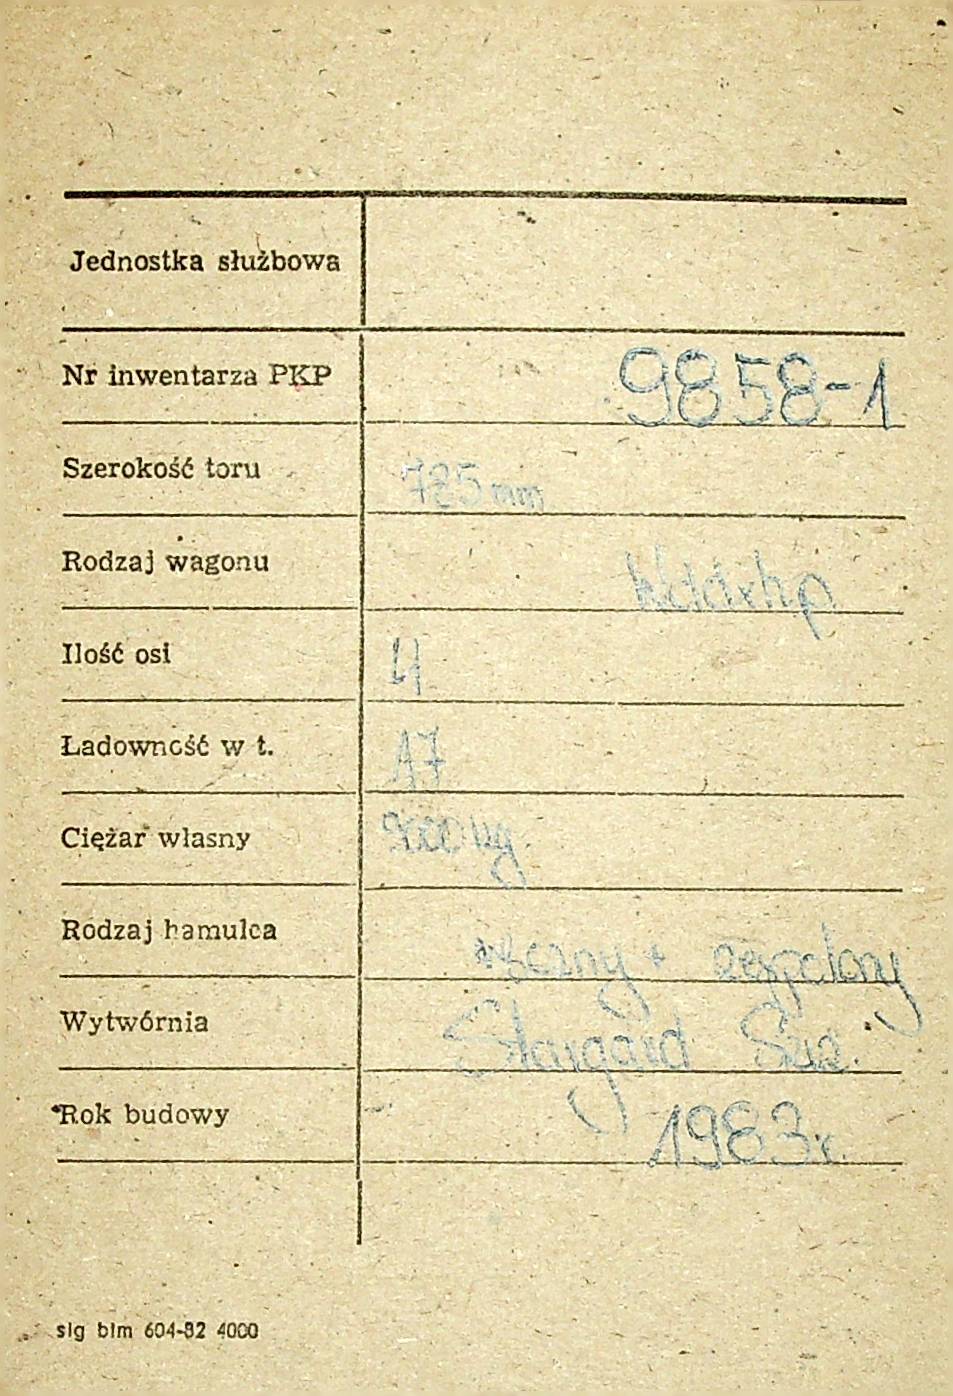 Jednostka służbowa
Nr inwentarza PKP 9858-1
Szerokość toru 785 mm
Rodzaj wagonu Wddxhp
Ilość osi 4
Ładowność w t. 17
Ciężar własny 9000 kg
Rodzaj hamulca ręczny + zespolony
Wytwórnia Stargard Szcz.
Rok budowy 1983 r.
slg blm 604-82 4000